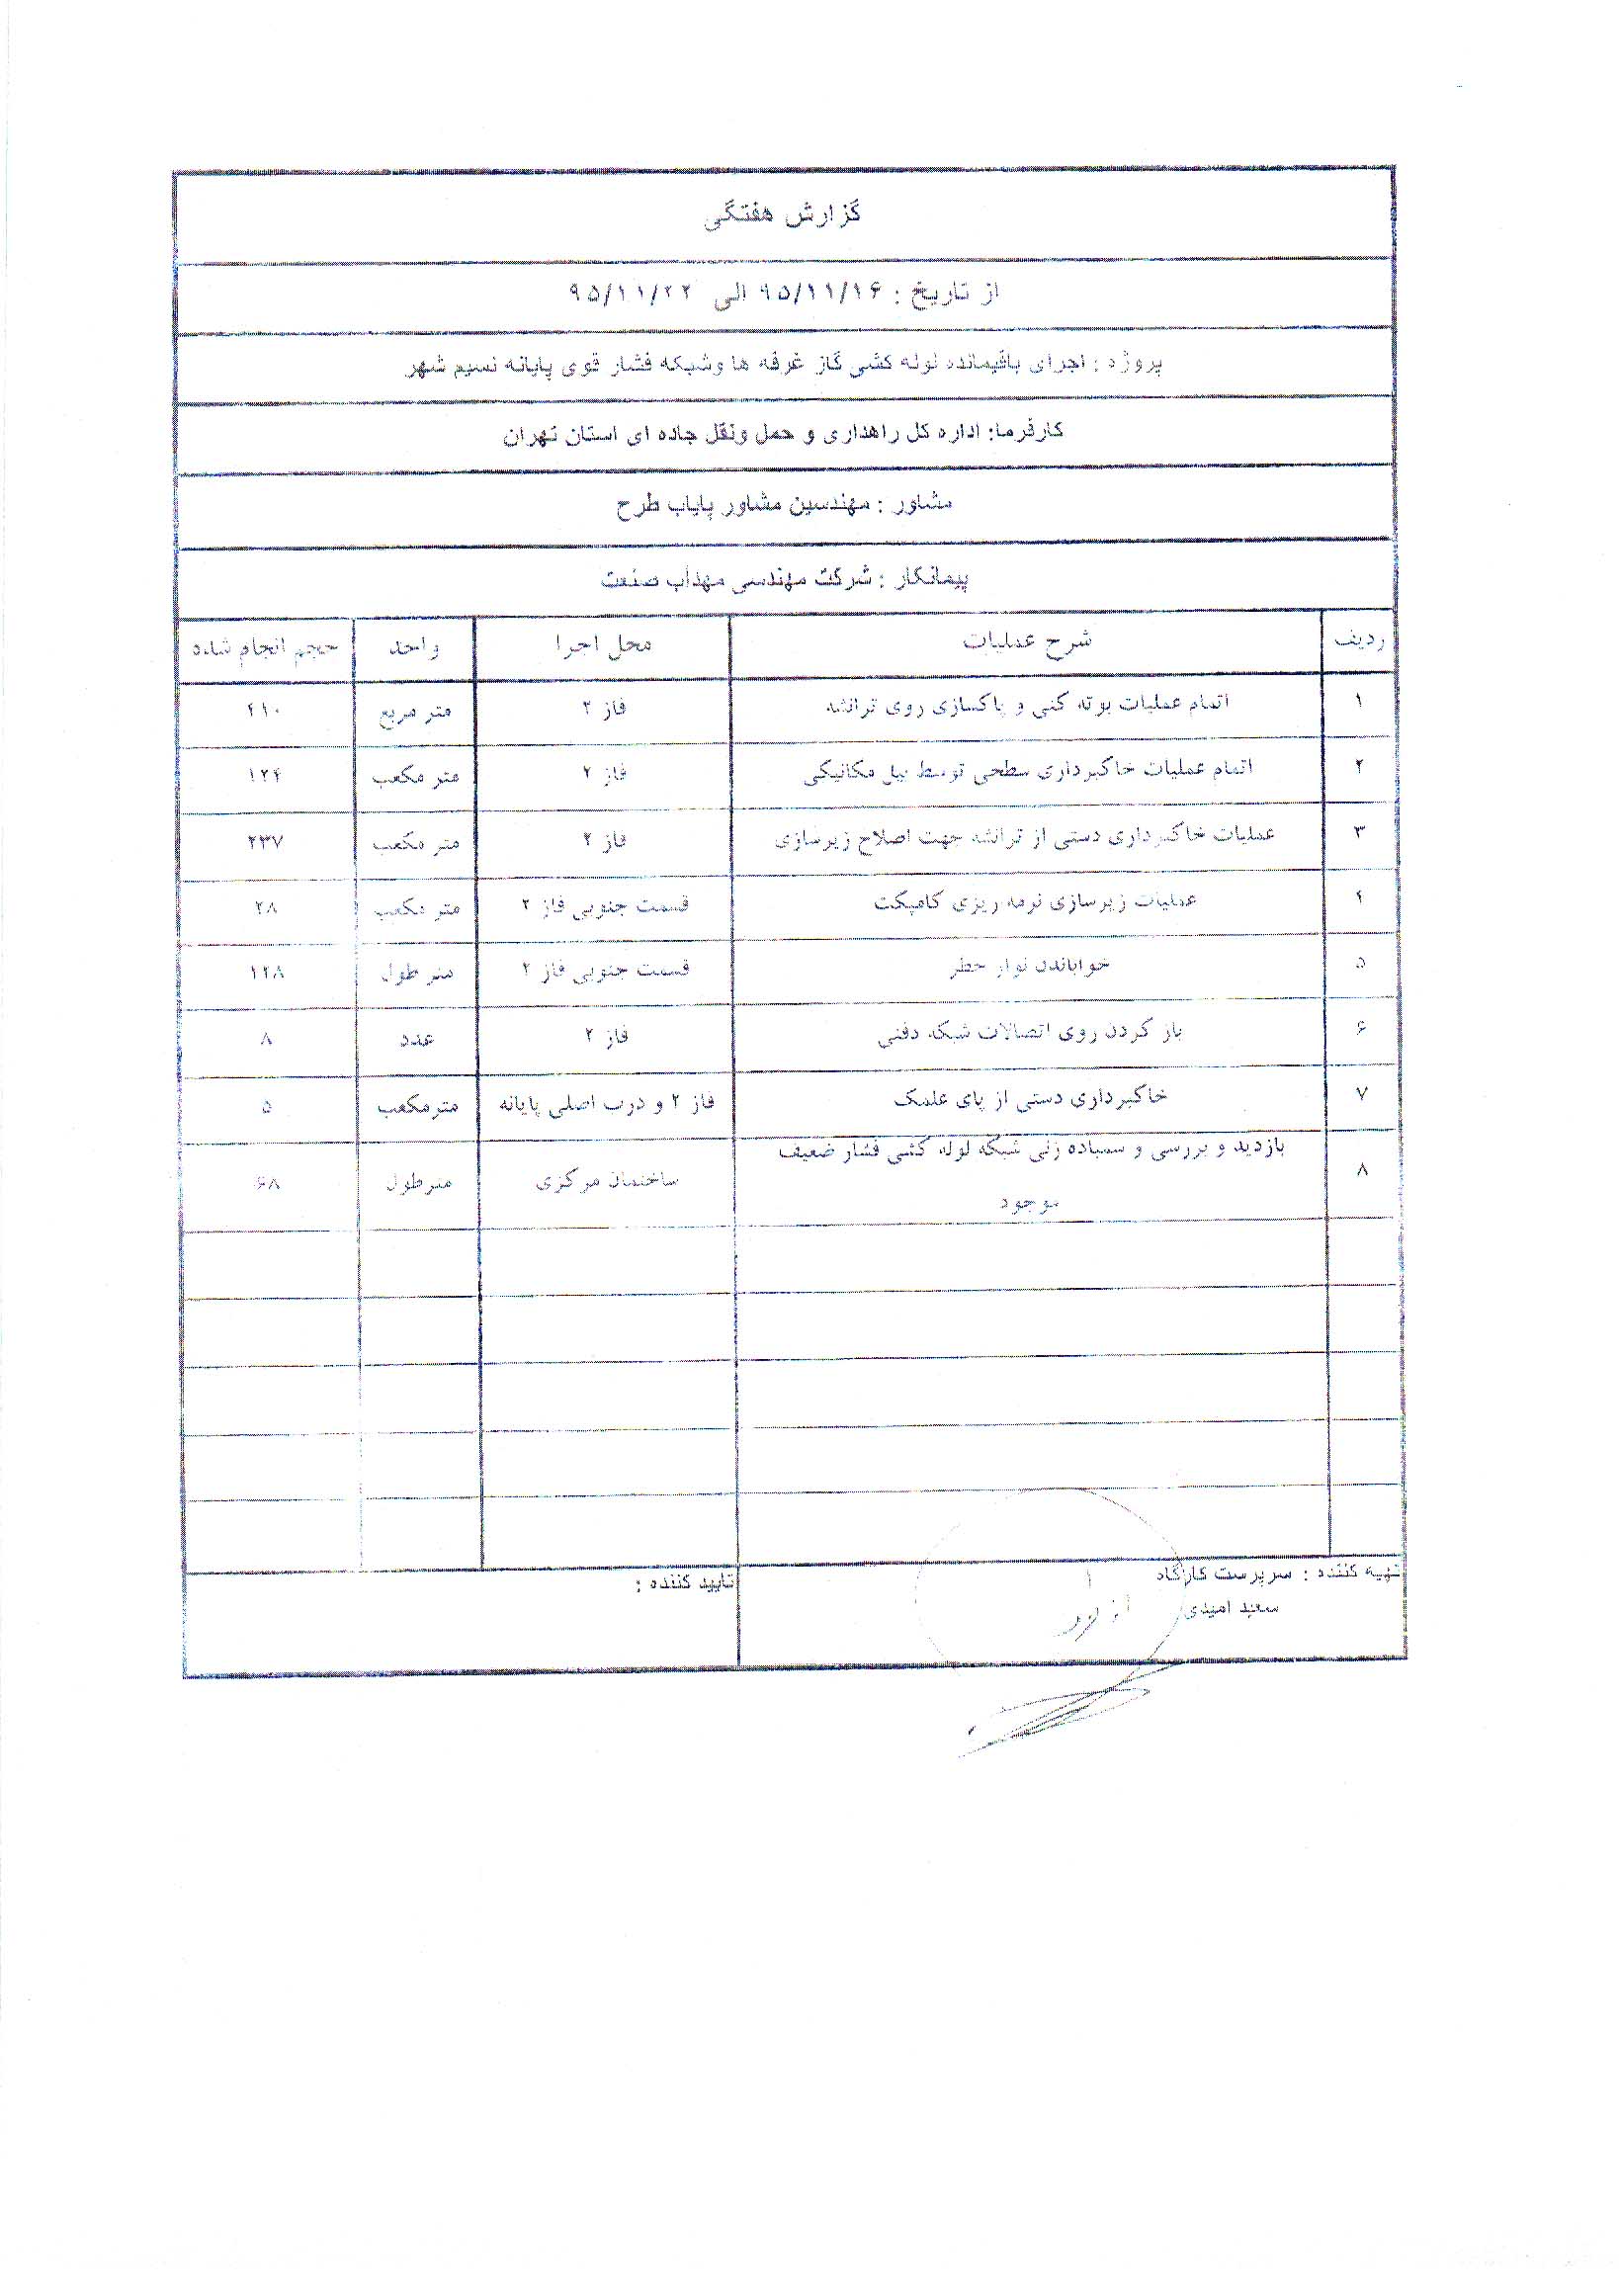 گزارش هفتگی
از تاریخ : ۹۵/۱۱/۱۶ الی ۹۵/۱۱/۲۲
پروژه : اجرای باقیمانده لوله کشی گاز غرفه ها وشبکه فشار قوی پایانه نسیم شهر
کارفرما: اداره کل راهداری و حمل ونقل جاده ای استان تهران
مشاور : مهندسین مشاور پایاب طرح
پیمانکار : شرکت مهندسی مهداب صنعت
ردیف شرح عملیات محل اجرا واحد حجم انجام شده
۱ اتمام عملیات بوته کنی و پاکسازی روی ترانشه فاز ۲ متر مربع
۲ اتمام عملیات خاکبرداری سطحی توسط بیل مکانیکی فاز ۲ متر مکعب ۱۲۴
۳ عملیات خاکبرداری دستی از ترانشه جهت اصلاح زیرسازی فاز ۲ متر مکعب ۲۳۷
۴ عملیات زیرسازی نرمه ریزی کامپکت قسمت جنوبی فاز ۲ متر مکعب ۲۸
۵ خواباندن نوار خطر قسمت جنوبی فاز ۲ متر طول ۱۲۸
۶ باز کردن روی اتصالات شبکه دفنی فاز ۲ عدد ۸
۷ خاکبرداری دستی از پای علمک فاز ۲ و درب اصلی پایانه مترمکعب ۵
۸ بازدید و بررسی و سمباده زنی شبکه لوله کشی فشار ضعیف موجود ساختمان مرکزی مترطول ۶۸
تهیه کننده : سرپرست کارگاه
سعید امیدی
تایید کننده :